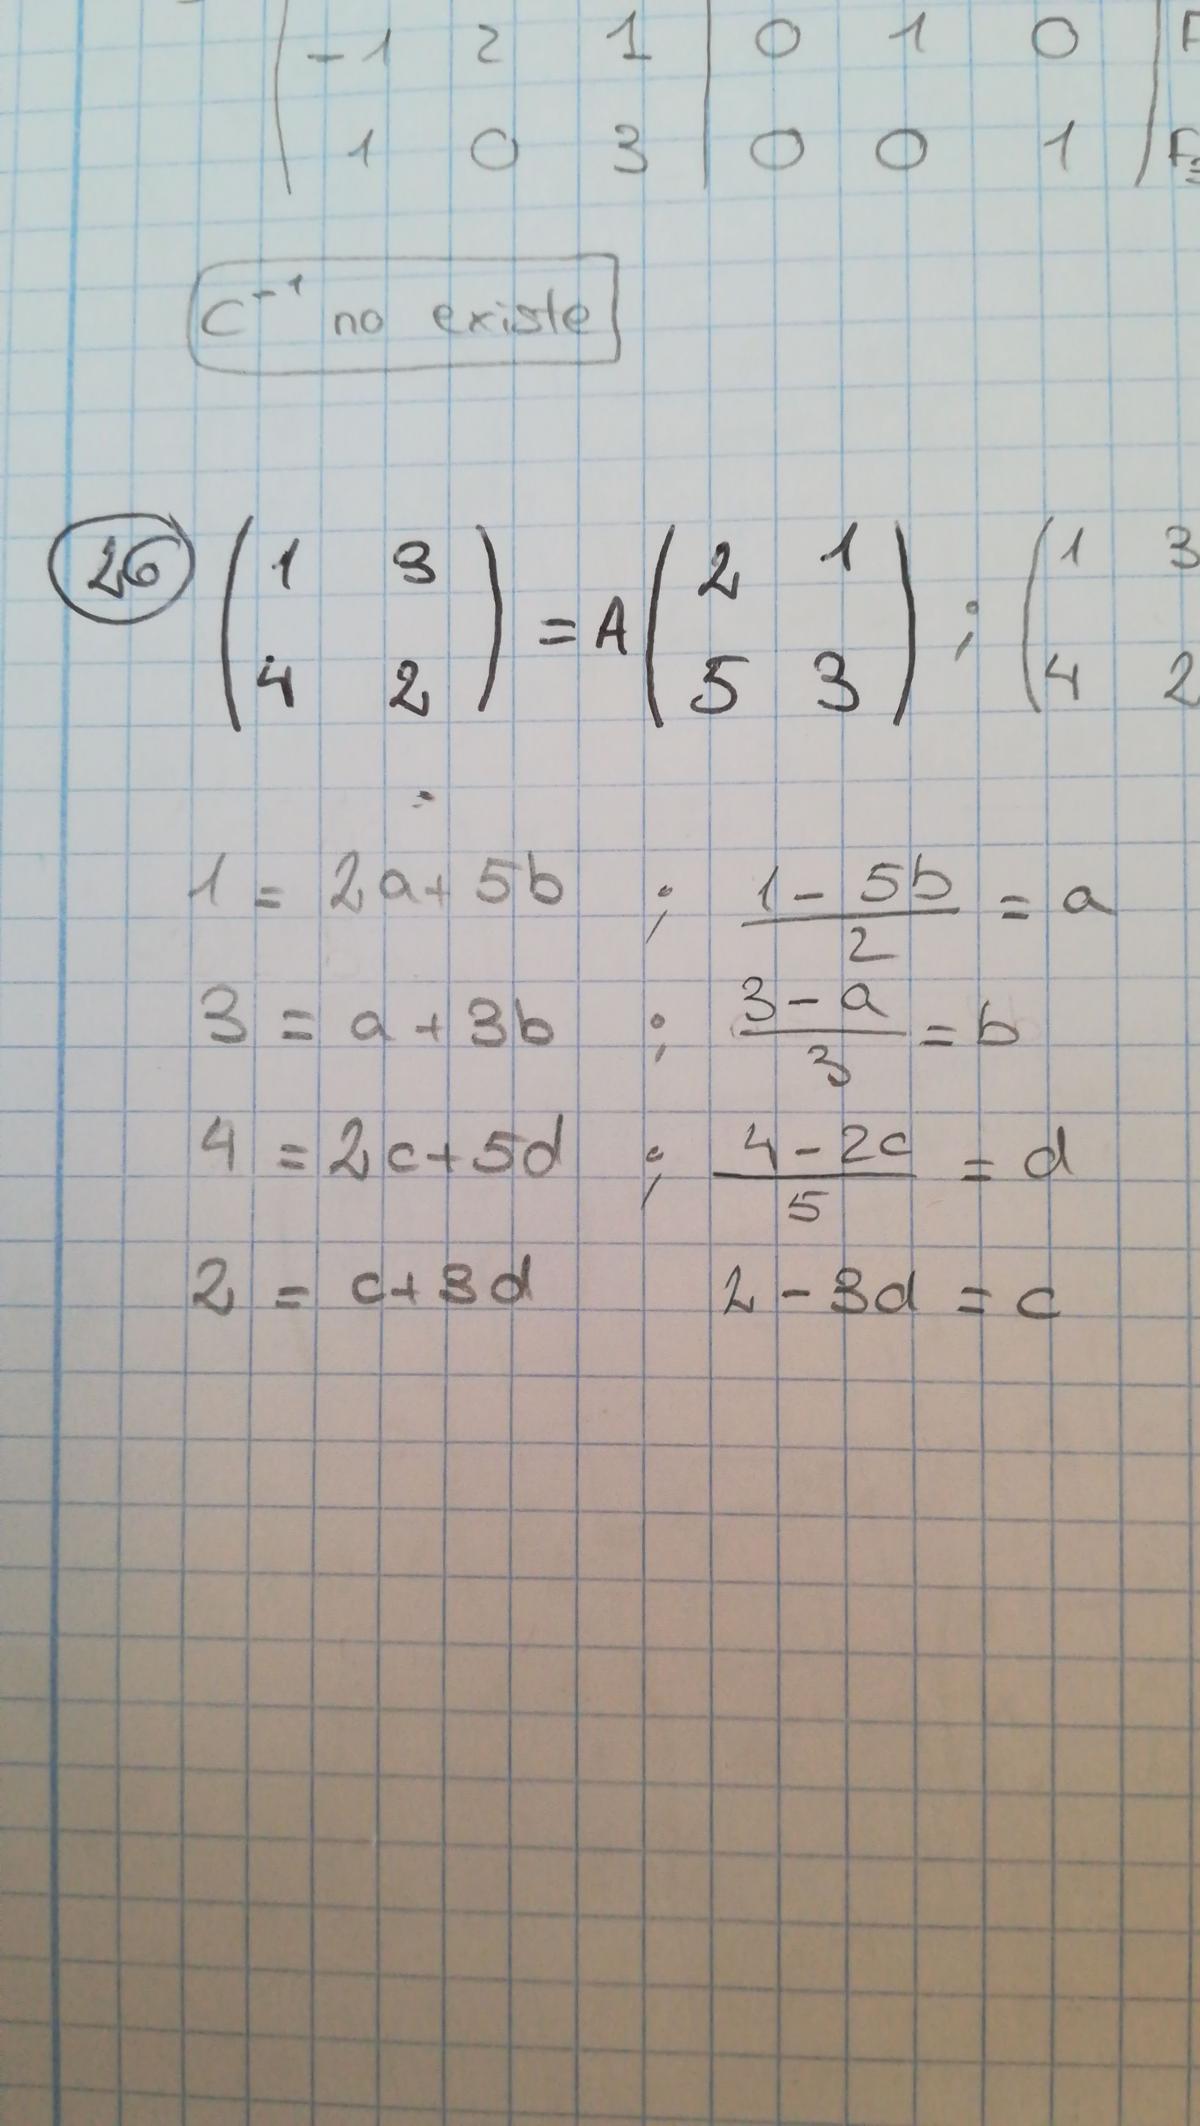 -1 2 1 | 0 1 0 | F
1 0 3 | 0 0 1 | F
C⁻¹ no existe
26 (1 3) = A (2 1) ; (1 3
(4 2) (5 3) 4 2
1 = 2a+ 5b ; (1 - 5b)/2 = a
3 = a + 3b ; (3 - a)/3 = b
4 = 2c+5d ; (4 - 2c)/5 = d
2 = c+3d 2 - 3d = c